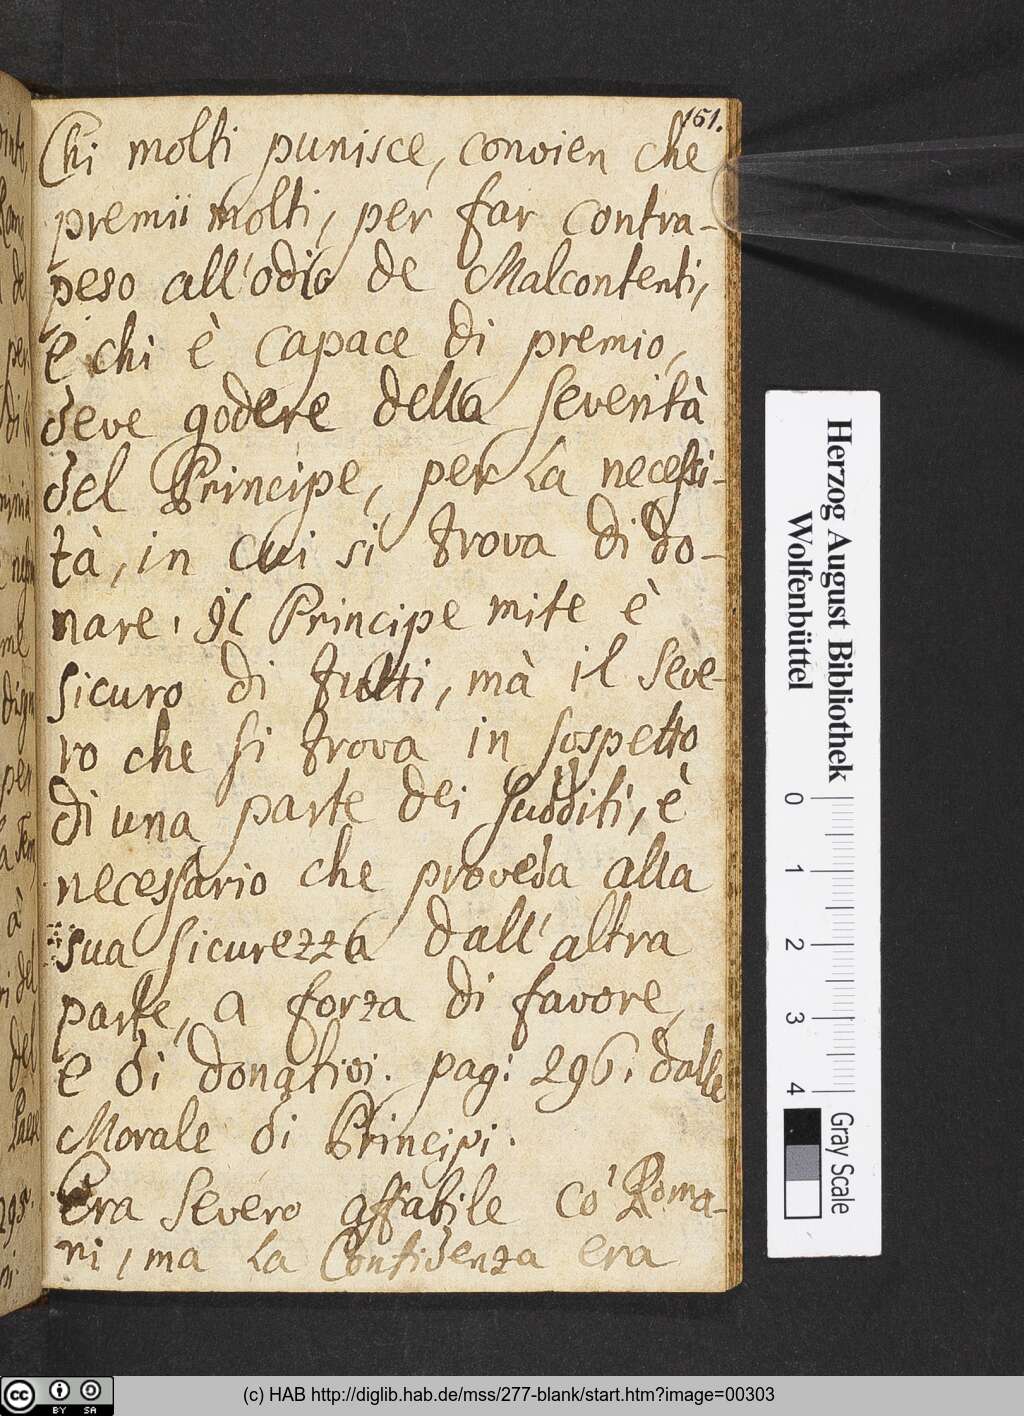 151.
Chi molti punisce, convien che
premii molti, per far contra-
peso all'odio de Malcontenti,
e chi è capace di premio,
deve godere della severità
del Principe, per la necessi-
tà, in cui si trova di do-
nare. Il Principe mite è
sicuro di tutti, mà il seve-
ro che si trova in sospetto
di una parte dei sudditi, è
necessario che proveda alla
sua sicurezza dall'altra
parte, a forza di favore,
e di donativi. pag: 296. dalle
Morale di Principi.
Era severo affabile co' Roma-
ni, ma la Confidenza era
Herzog August Bibliothek
Wolfenbüttel
0 1 2 3 4
Gray Scale
cc BY SA
(c) HAB http://diglib.hab.de/mss/277-blank/start.htm?image=00303